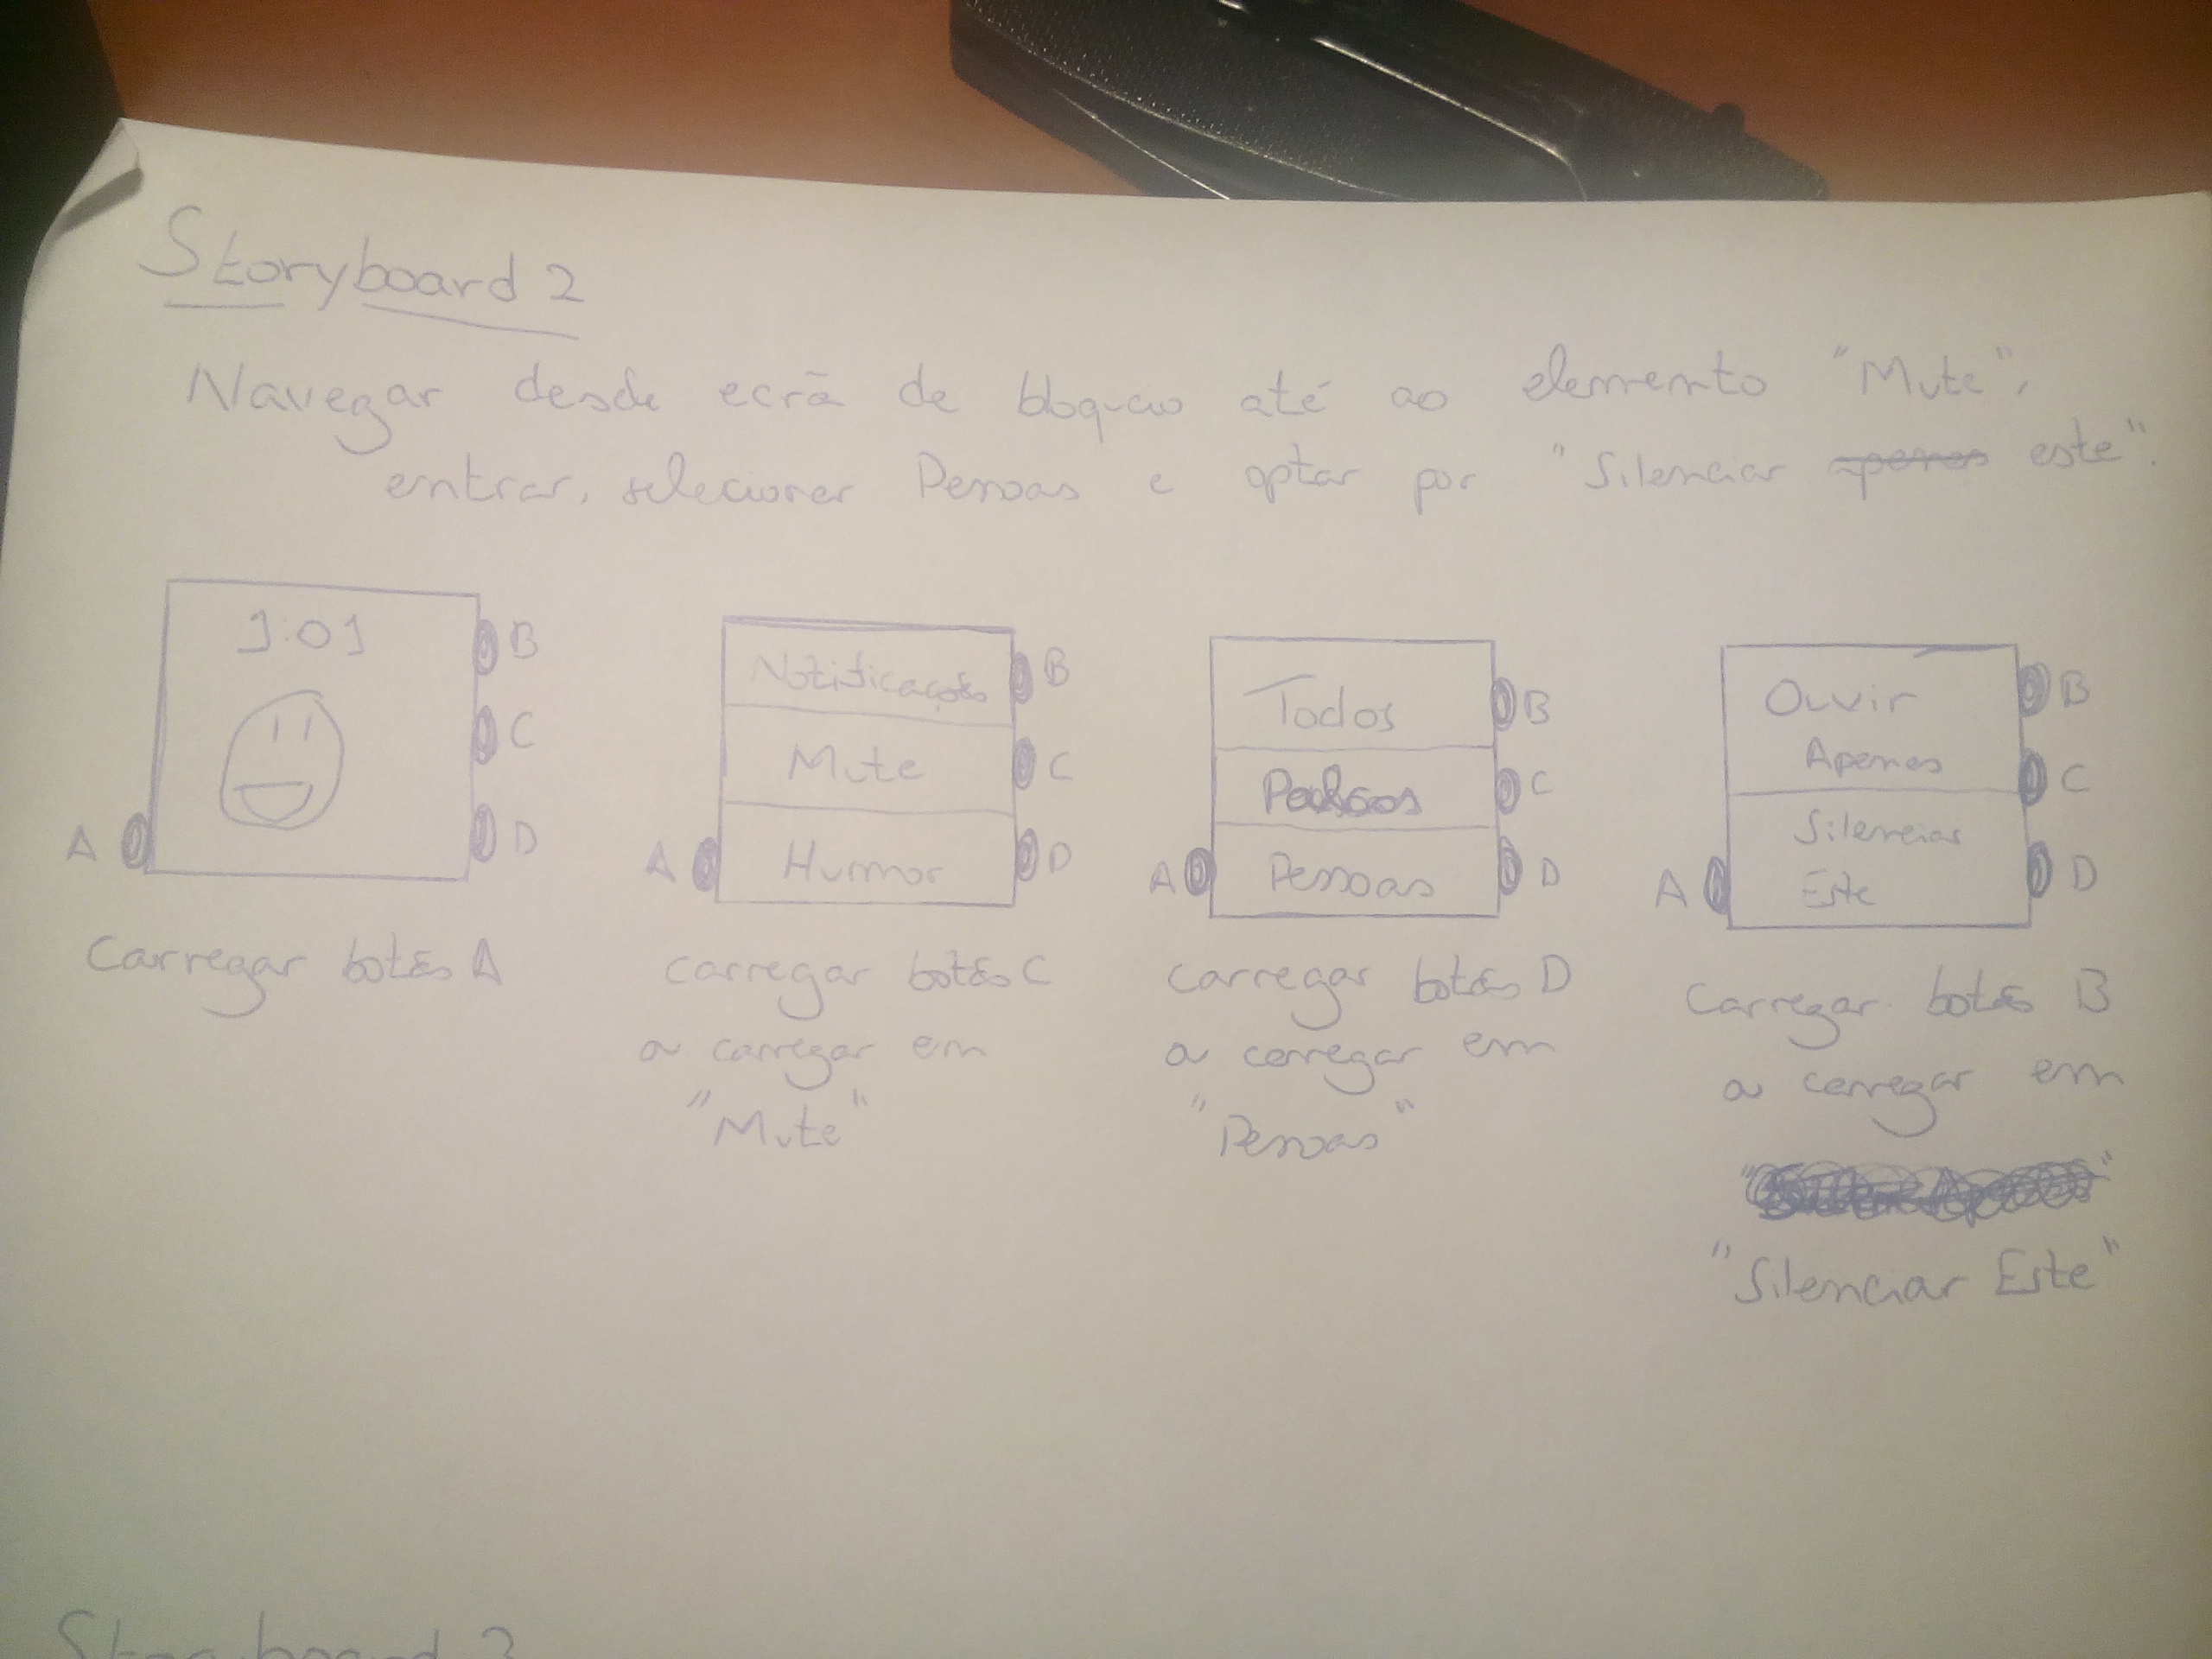 Storyboard 2
Navegar desde ecrã de bloqueio até ao elemento "Mute",
entrar, selecionar Pessoas e optar por "Silenciar apenas este".
1:01
B
C
A
D
Carregar botão A
Notificações
B
Mute
C
A
Humor
D
carregar botão C
a carregar em
"Mute"
Todos
B
C
A
Pessoas
D
carregar botão D
a carregar em
"Pessoas"
Ouvir
B
Apenas
C
Silenciar
A
Este
D
Carregar botão B
a carregar em
"Silenciar Este"
Storyboard 3